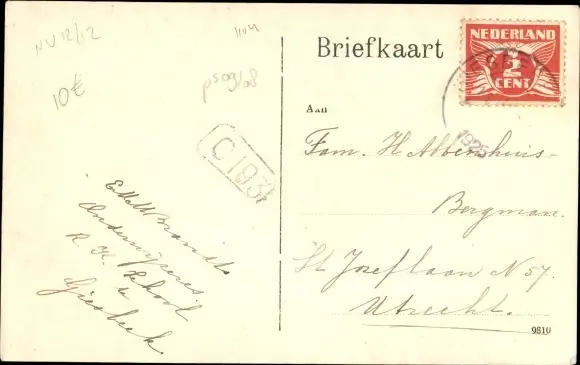 NV 12/12
1104
10€
ps0g/08
C 193
E.M.M. Brandts
Onderwijzeres
R. K. School
te
Giesbeek.
Briefkaart
NEDERLAND
2
CENT
1925
Aan
Fam. H. Abbenhuis-
Bergman.
St Joseflaan N 57.
Utrecht.
9810